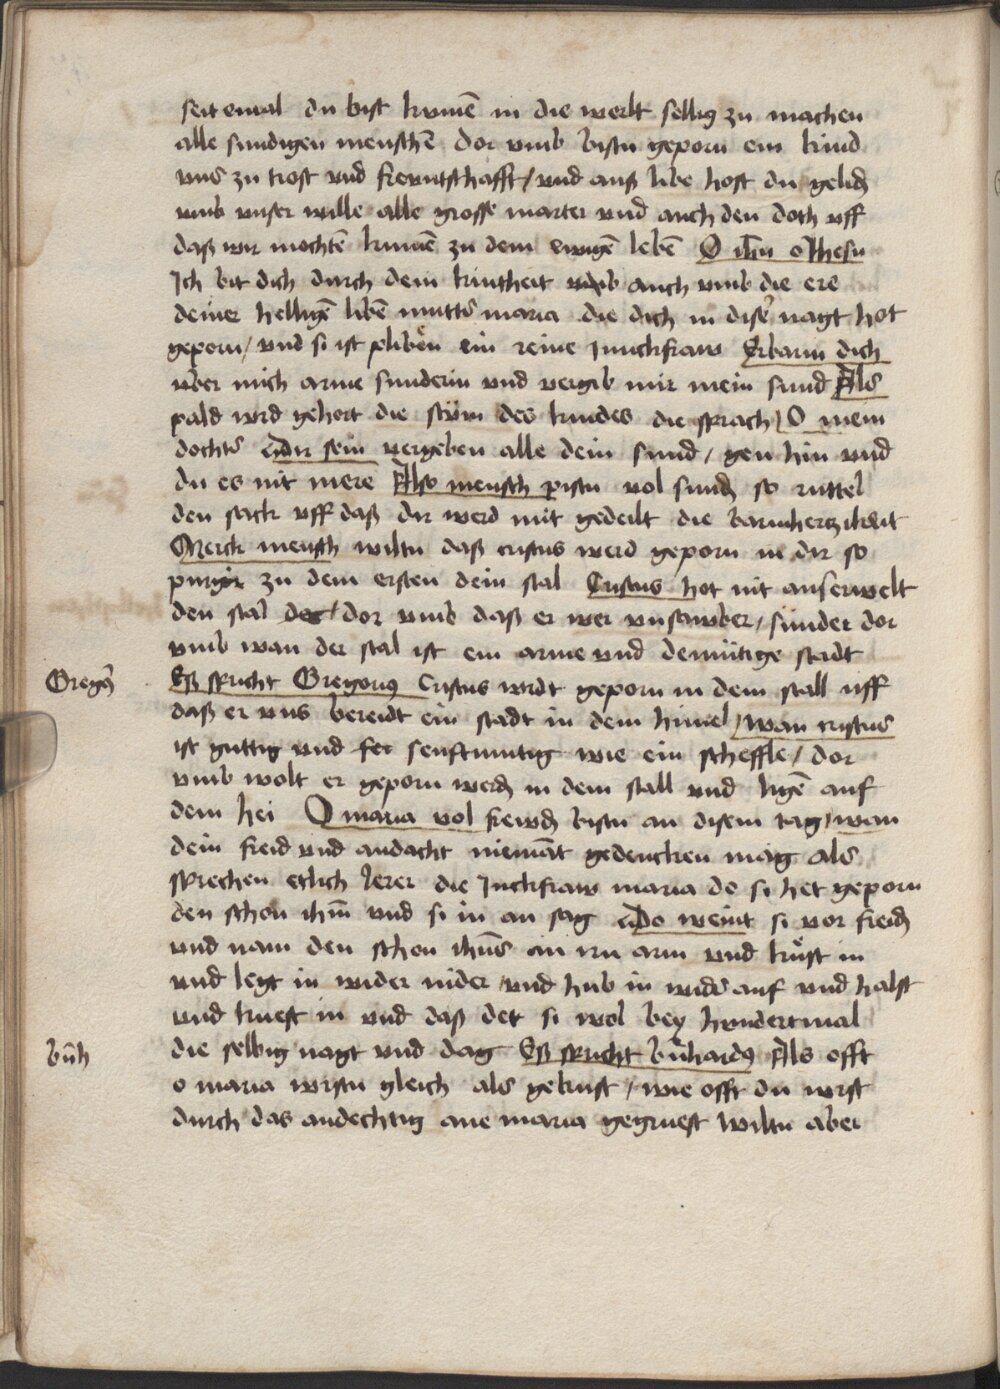 seit emal du bist kumē in die werlt sellig zu machen
alle sundigen menschē dor vmb bistu geporn ein kind
vns zu trost vnd frewntschafft / vnd auß libe host du gelidē
vmb vnser wille alle grosse marter vnd auch den doth vff
daß wir mochtē kumē zu dem ewigē lebē O ihū o Jhesu
Ich bit dich durch dein kintheit vnd auch vmb die ere
deiner helligē libē mutter maria die dich in diser nagt hot
geporn / vnd si ist pliben ein reine Junckfraw Erbarm dich
vber mich arme sunderin vnd vergib mir mein sund Als
pald wrd gehort die stÿm des kindes die sprach / O mein
dochter Dir sein vergeben alle dein sund / gen hin vnd
du es nit mere Also mensch pistu vol sundē so ruttel
den sack vff daß dir werd mit gedeilt die barmhertzikeit
Merck mensch wiltu daß cristus werd geporn in dir so
purgir zu dem ersten dein stal Cristus hot nit auserwelt
den stal / dor vmb daß er wer vnsawber / sunder dor
vmb wan der stal ist ein arme vnd demütige stadt
Gregꝰ
Eß spricht Gregorius Cristus wirdt geporn in dem stall vff
daß er vns bereidt ein stadt in dem himel / wan cristus
ist guttig vnd senftmutig wie ein scheffle / dor
vmb wolt er geporn werdē in dem stall vnd ligē auf
dem hei O maria vol frewdē bistu an disem tag / wan
dein freid vnd andacht niemāt gedencken mag als
sprechen etlich lerer die Junckfraw maria do si het geporn
den schon ihm̄ vnd si in an sag Do weint si vor freidē
vnd nam den schon ihūs an irn arm vnd kust in
vnd legt in wider nider / vnd hub in wider auf vnd halst
vnd kuest in vnd daß det si wol bey hundertmal
bn̄h
die selbig nagt vnd dag Eß spricht bn̄hardꝰ Als offt
o maria wirstu gleich als gekust / wie offt du wirst
durch das andechtig aue maria gegruest Wiltu aber